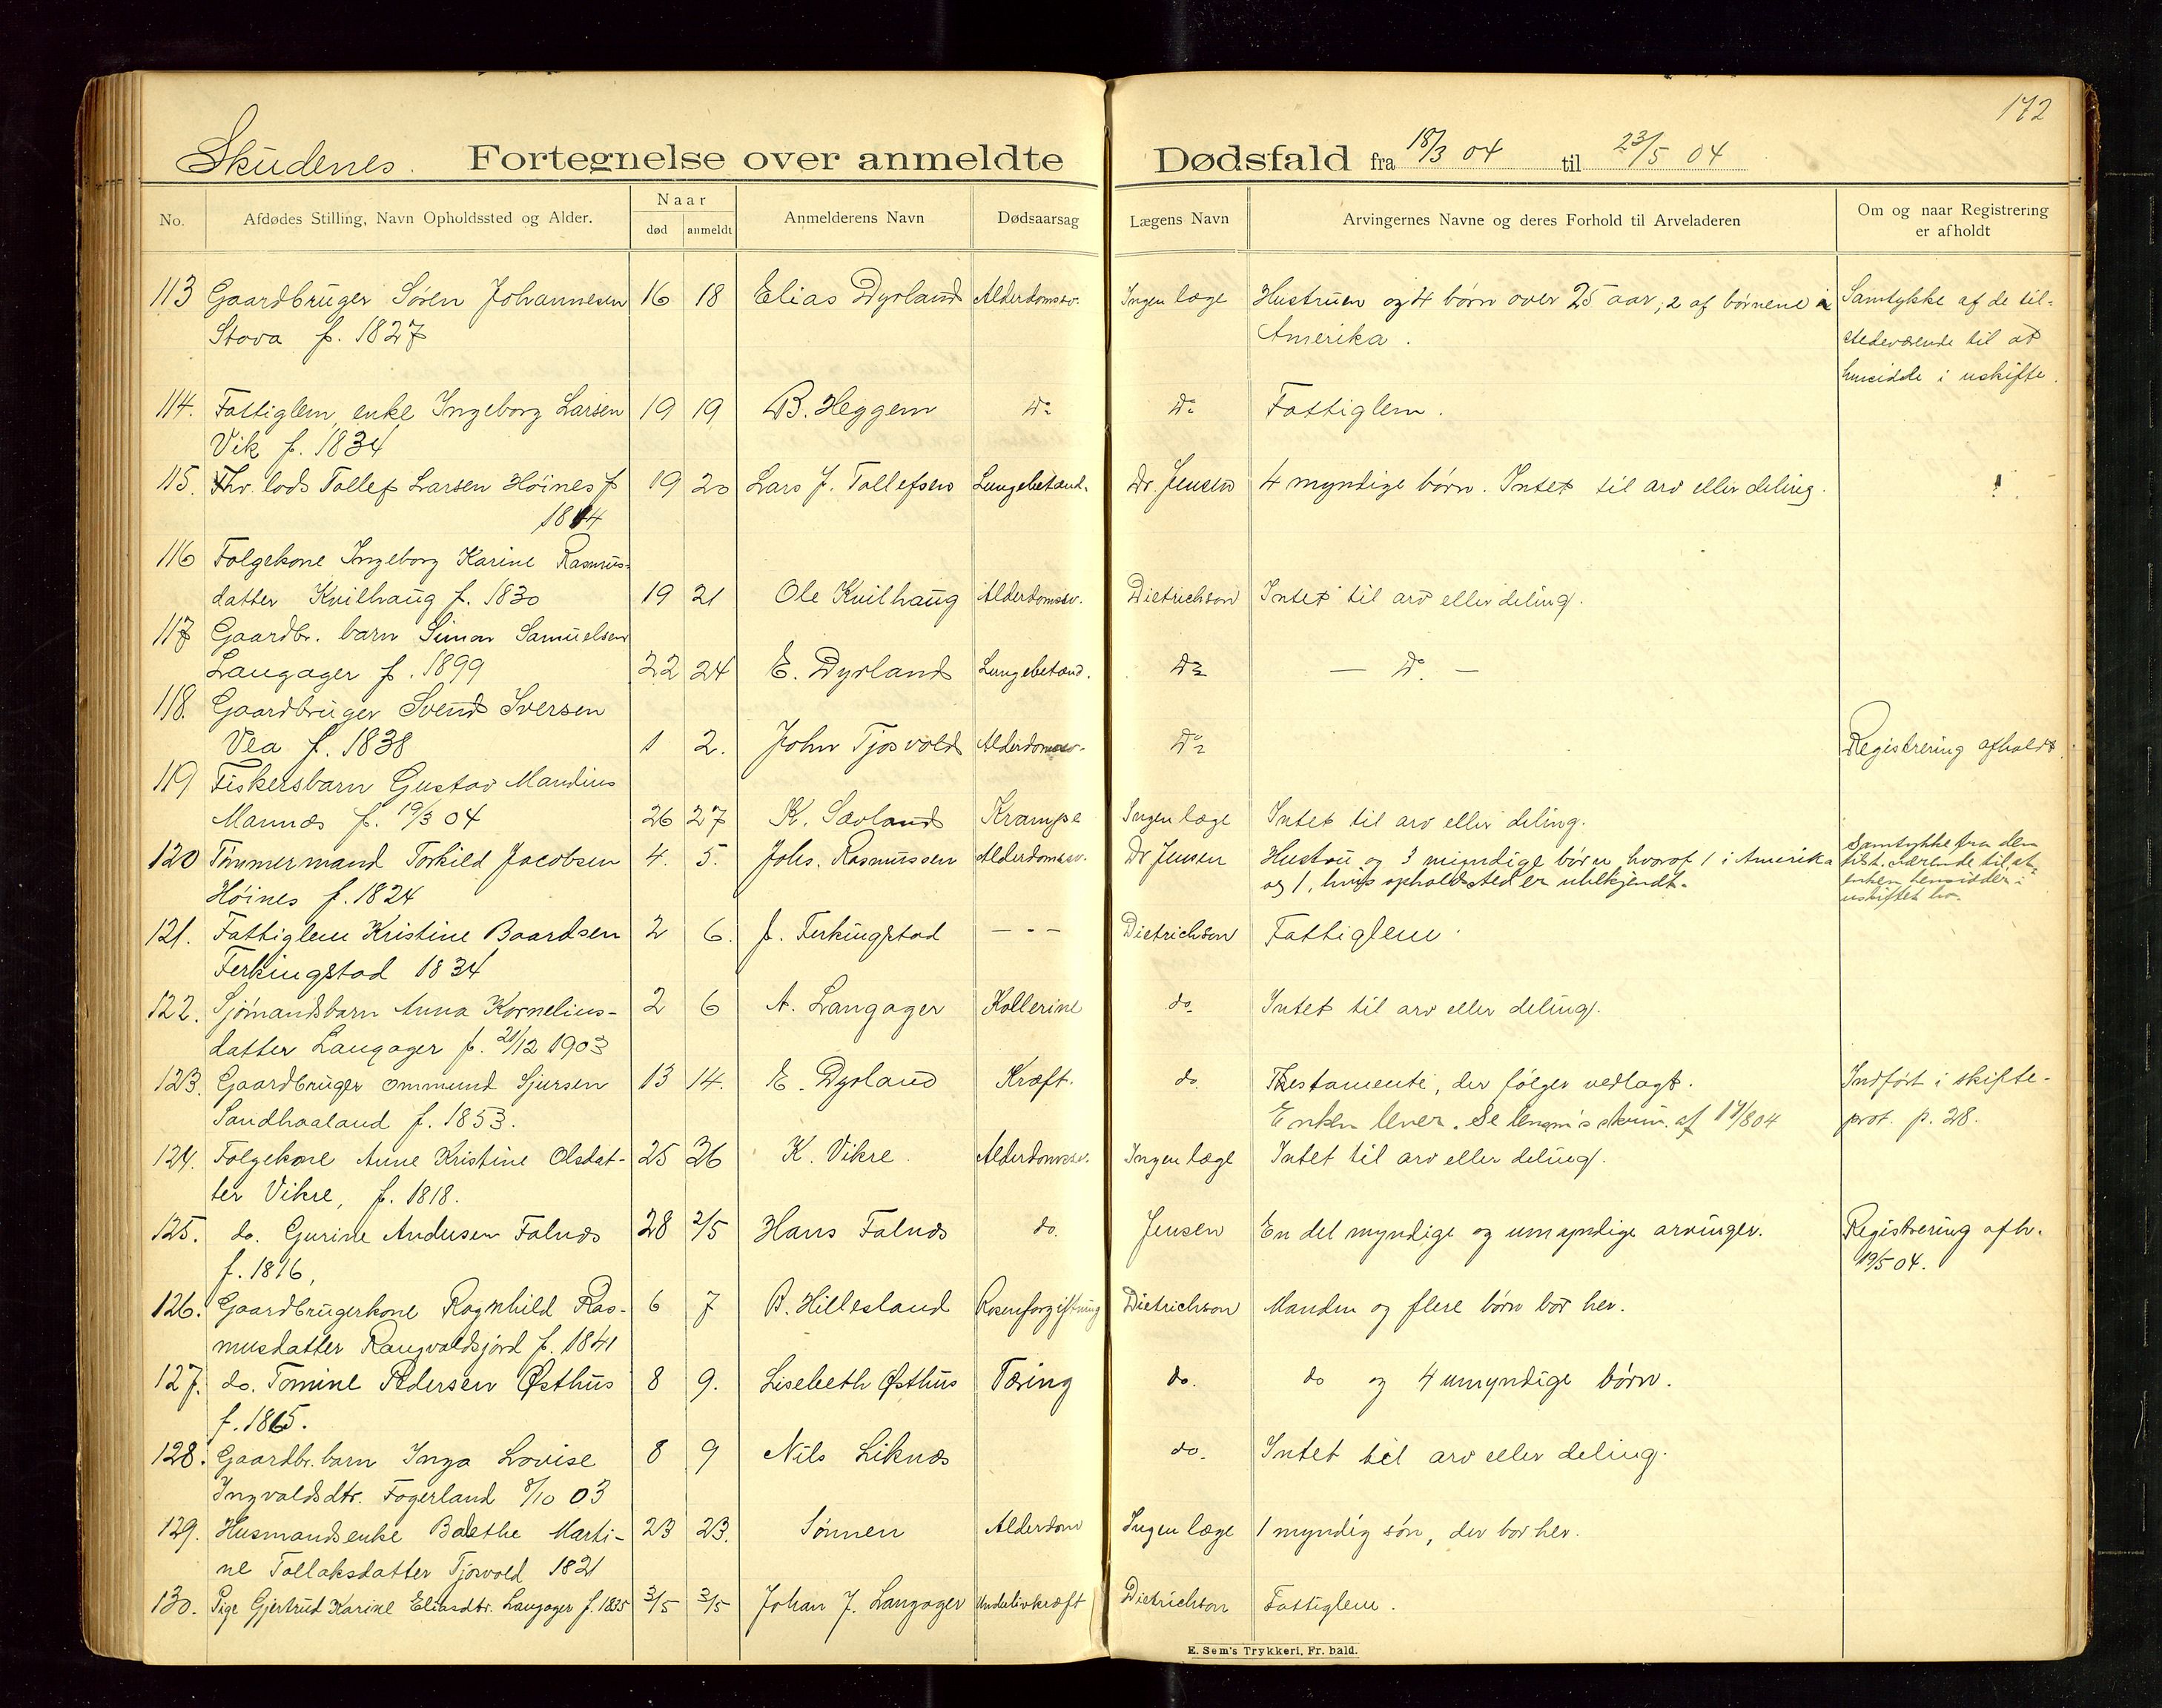 172
Skudenes. Fortegnelse over anmeldte Dødsfald fra 18/3 04 til 23/5 04
No. Afdødes Stilling, Navn Opholdssted og Alder. Naar død anmeldt Anmelderens Navn Dødsaarsag Lægens Navn Arvingernes Navne og deres Forhold til Arveladeren Om og naar Registrering er afholdt
113 Gaardbruger Søren Johannesen 16 18 Elias Dyrland Alderdomssv. Ingen læge Hustruen og 4 børn over 25 aar, 2 af børnene i Samtykke af de til-
Stava f. 1827 Amerika. stedeværende til at
hensidde i uskifte.
114. Fattiglem, enke Ingeborg Larsen 19 19 B. Heggem Do Do Fattiglem.
Vik f. 1834
115. Fhv. lods Tollef Larsen Høines f 19 20 Lars J. Tollefsen Lungebetænd. Dr. Jensen 4 myndige børn. Intet til arv eller deling.
1814
116 Folgekone Ingeborg Karine Rasmus-
datter Kvilhaug f. 1830 19 21 Ole Kvilhaug Alderdomssv. Dietrichson Intet til arv eller deling.
117 Gaardbr. barn Simon Samuelsen
Langager f. 1899 22 24 E. Dyrland Lungebetænd. Do — Do —
118. Gaardbruger Svend Iversen
Vea f. 1838 1 2. John Tjosvold Alderdomssv. Do Registrering afholdt.
119 Fiskersbarn Gustav Mandius
Mannes f. 19/3 04 26 27 K. Sævland Krampe Ingen læge Intet til arv eller deling.
120 Tømmermand Torkild Jacobsen 4. 5. Johs. Rasmussen Alderdomssv. Dr Jensen Hustru og 3 myndige børn, hvoraf 1 i Amerika Samtykke fra den
Høines f. 1824 og 1, hvis opholdsted er ubekjendt. tilst.værende til at
enken hensidder i
uskiftet bo.
121. Fattiglem Kristine Baardsen 2 6. J. Ferkingstad — " — Dietrichson Fattiglem
Ferkingstad 1834
122. Sjømandsbarn Anna Kornelius- 2 6 A. Langager Kollerine do. Intet til arv eller deling.
datter Langager f. 21/12 1903
123. Gaardbruger Ommund Sjursen 13 14. E. Dyrland Kræft. do. Testamente, der følger vedlagt. Indført i skifte-
Sandhaaland f. 1853. Enken lever. Se lensm's skriv. af 17/8 04 prot. p. 28.
124. Folgekone Anne Kristine Olsdat- 25 26 K. Vikre. Alderdomssv. Ingen læge Intet til arv eller deling.
ter Vikre, f. 1818.
125. do. Gurine Andersen Falnes 28 2/5 Hans Falnes do. Jensen En del myndige og umyndige arvinger. Registrering afh.
f. 1816, 19/5 04.
126. Gaardbrugerkone Ragnhild Ras- 6 7 B. Hillesland Rosenforgiftning Dietrichson Manden og flere børn bor her.
musdatter Rangvaldsjord f. 1841
127. do. Tomine Pedersen Østhus 8 9. Lisebeth Østhus Tæring do. do og 4 umyndige børn.
f. 1865.
128. Gaardbr. barn Inga Lovise 8 9 Nils Liknes do. Intet til arv eller deling.
Ingvaldsdtr. Fagerland 8/10 03
129. Husmandsenke Balethe Marti- 23 23. Sønnen Alderdom Ingen læge 1 myndig søn, der bor her.
ne Tollaksdatter Tjosvold 1821
130. Pige Gjertrud Karine Eliasdtr. Langager f. 1835 3/5 3/5 Johan J. Langager Underlivkræft Dietrichson Fattiglem.
E. Sem's Trykkeri, Fr. hald.